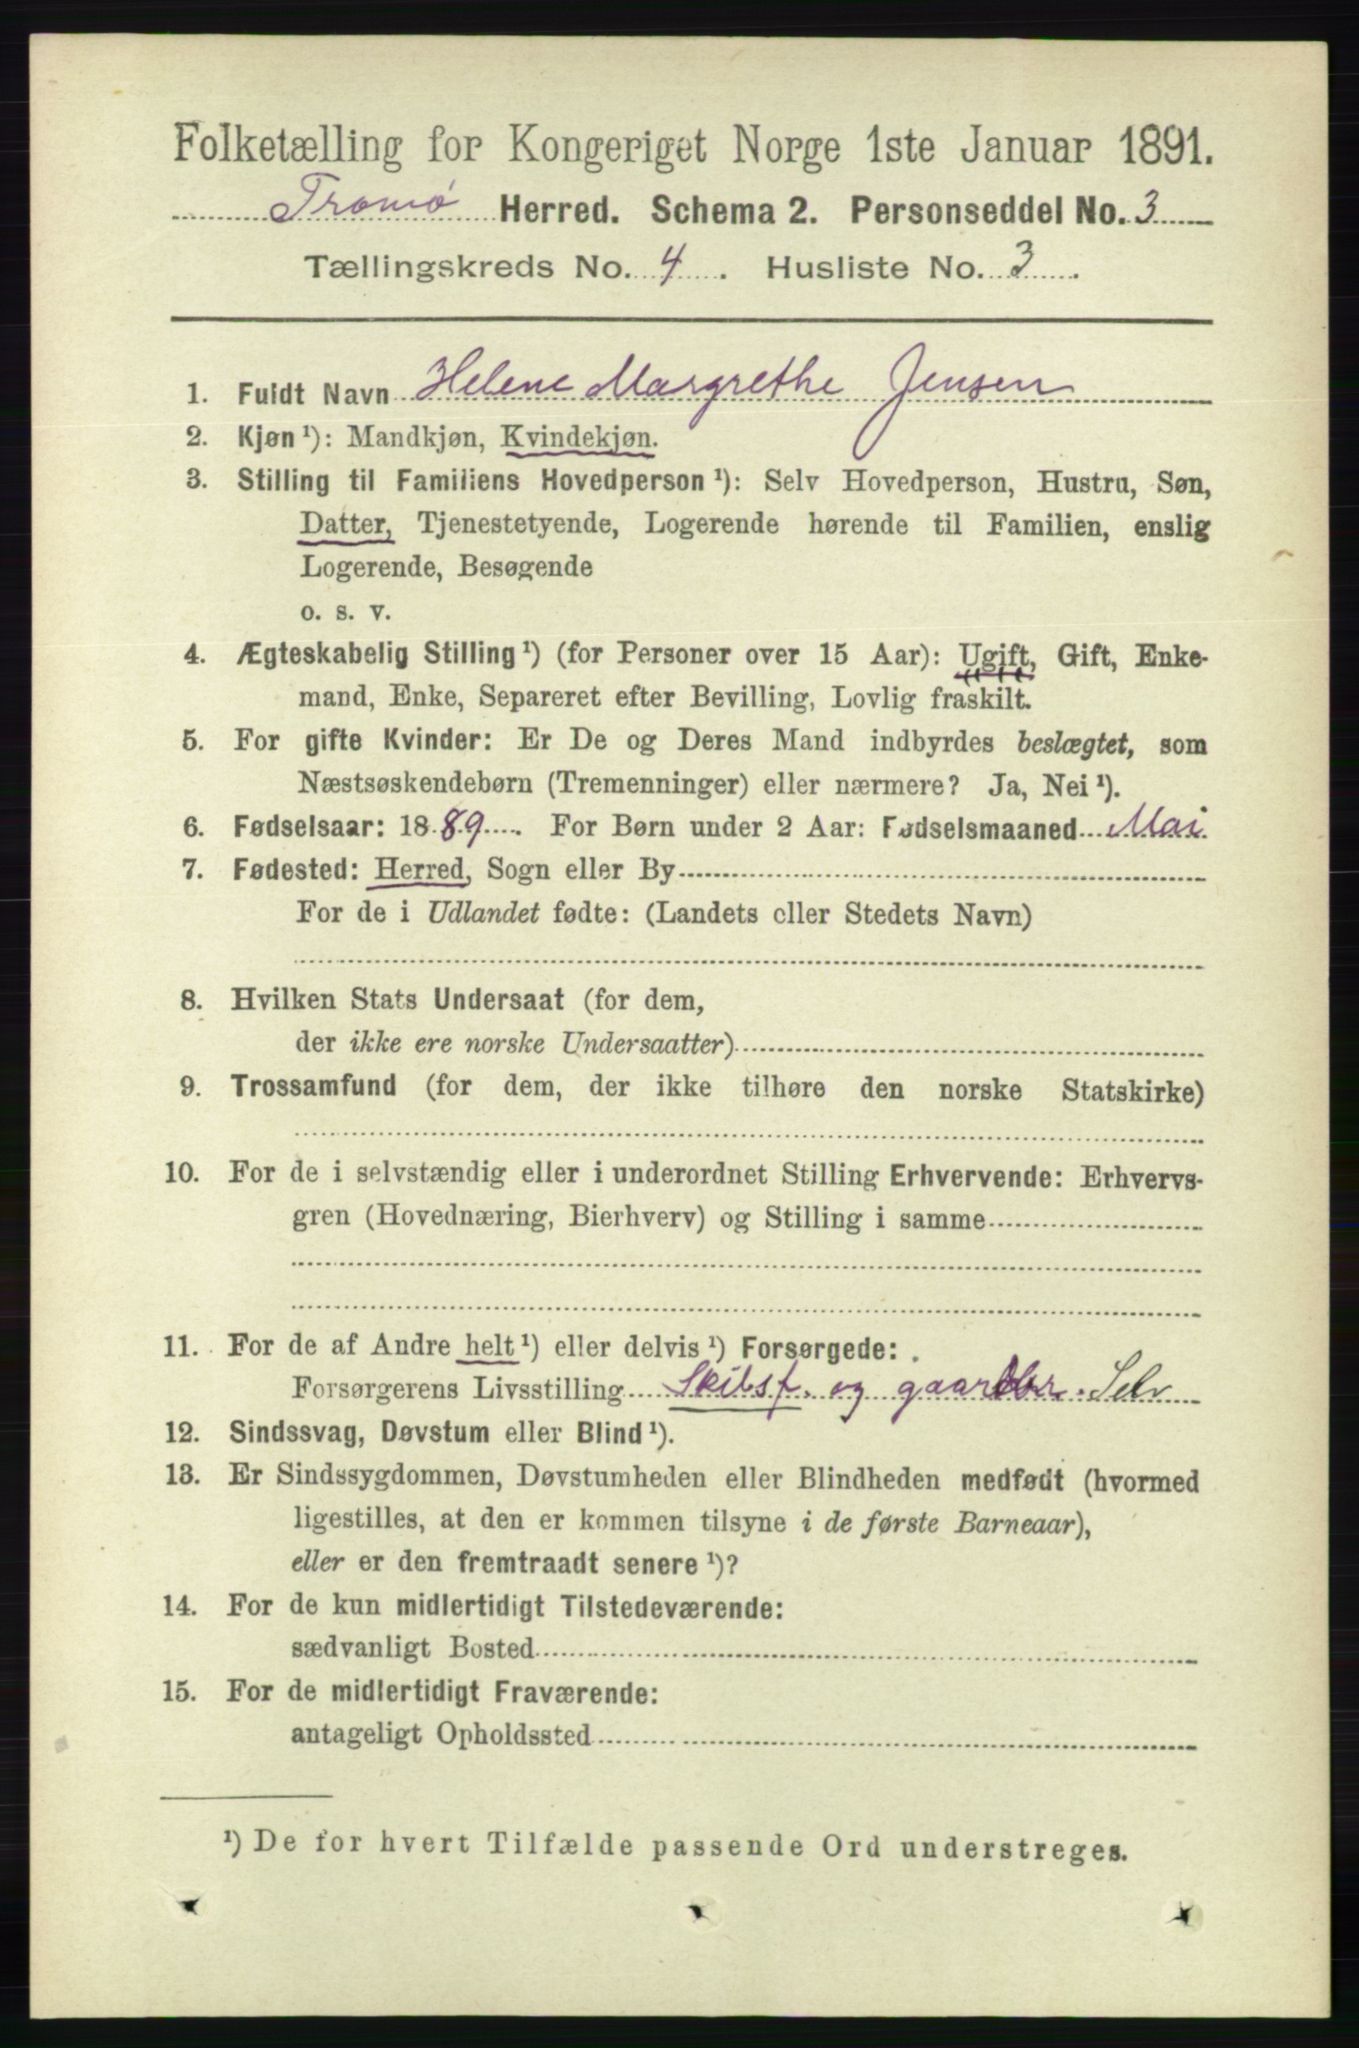 Folketælling for Kongeriget Norge 1ste Januar 1891.
Tromø Herred. Schema 2. Personseddel No. 3
Tællingskreds No. 4. Husliste No. 3.
1. Fuldt Navn Helene Margrethe Jensen
2. Kjøn ¹): Mandkjøn, Kvindekjøn.
3. Stilling til Familiens Hovedperson ¹): Selv Hovedperson, Hustru, Søn,
Datter, Tjenestetyende, Logerende hørende til Familien, enslig
Logerende, Besøgende
o. s. v.
4. Ægteskabelig Stilling ¹) (for Personer over 15 Aar): Ugift, Gift, Enke-
mand, Enke, Separeret efter Bevilling, Lovlig fraskilt.
5. For gifte Kvinder: Er De og Deres Mand indbyrdes beslægtet, som
Næstsøskendebørn (Tremenninger) eller nærmere? Ja, Nei ¹).
6. Fødselsaar: 1889. For Børn under 2 Aar: Fødselsmaaned Mai
7. Fødested: Herred, Sogn eller By
For de i Udlandet fødte: (Landets eller Stedets Navn)
8. Hvilken Stats Undersaat (for dem,
der ikke ere norske Undersaatter)
9. Trossamfund (for dem, der ikke tilhøre den norske Statskirke)
10. For de i selvstændig eller i underordnet Stilling Erhvervende: Erhvervs-
gren (Hovednæring, Bierhverv) og Stilling i samme
11. For de af Andre helt ¹) eller delvis ¹) Forsørgede:
Forsørgerens Livsstilling Skibsf. og gaardbr. Selv
12. Sindssvag, Døvstum eller Blind ¹).
13. Er Sindssygdommen, Døvstumheden eller Blindheden medfødt (hvormed
ligestilles, at den er kommen tilsyne i de første Barneaar),
eller er den fremtraadt senere ¹)?
14. For de kun midlertidigt Tilstedeværende:
sædvanligt Bosted
15. For de midlertidigt Fraværende:
antageligt Opholdssted
¹) De for hvert Tilfælde passende Ord understreges.